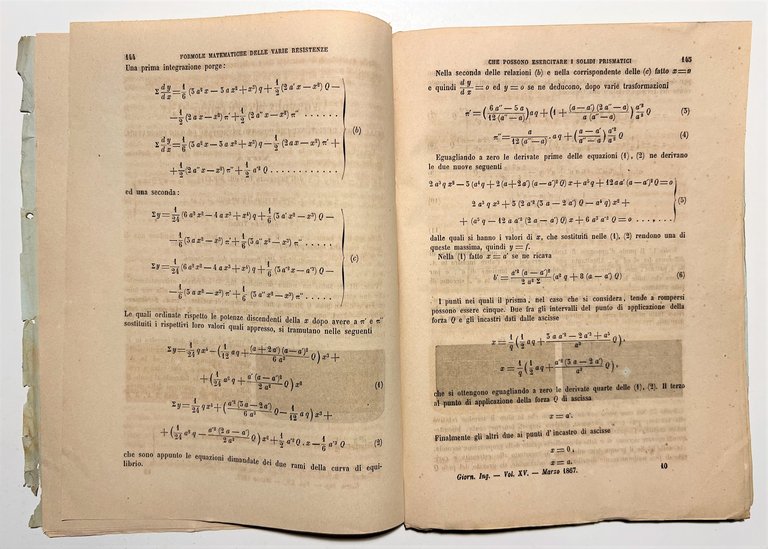 144 FORMOLE MATEMATICHE DELLE VARIE RESISTENZE
Una prima integrazione porge:
Σ dy/dx = 1/6 (5 a² x — 5 a x² + x³) q + 1/2 (2 a' x — x²) Q —
— 1/2 (2 a x — x²) π' + 1/2 (2 a'' x — x²) π'' . . . . . . .
Σ dy/dx = 1/6 (5 a² x — 5 a x² + x³) q — 1/2 (2 a x — x²) π' +
+ 1/2 (2 a'' x — x²) π'' + 1/2 a'² Q . . . . . . .
(b)
ed una seconda:
Σy = 1/24 (6 a² x² — 4 a x³ + x⁴) q + 1/6 (5 a' x² — x³) Q —
— 1/6 (5 a x² — x³) π' + 1/6 (5 a'' x² — x³) π'' . . . . . .
Σy = 1/24 (6 a² x² — 4 a x³ + x⁴) q + 1/6 (5 a'² x — a'³) Q —
— 1/6 (5 a x² — x³) π' + 1/6 (5 a'' x² — x³) π'' . . . . . .
(c)
Le quali ordinate rispetto le potenze discendenti della x dopo avere a π' e π''
sostituiti i rispettivi loro valori quali appresso, si tramutano nelle seguenti
Σy = 1/24 q x⁴ — (1/12 a q + (a + 2 a') (a — a')²/6 a³ Q) x³ +
+ (1/24 a² q + a' (a — a')²/2 a² Q) x²
(1)
Σy = 1/24 q x⁴ + (a'² (5 a — 2 a')/6 a³ Q — 1/12 a q) x³ +
+ (1/24 a² q — a'² (2 a — a')/2 a² Q) x² + 1/2 a'² Q . x — 1/6 a'³ Q (2)
che sono appunto le equazioni dimandate dei due rami della curva di equi-
librio.
CHE POSSONO ESERCITARE I SOLIDI PRISMATICI 145
Nella seconda delle relazioni (b) e nella corrispondente delle (c) fatto x = a
e quindi dy/dx = o ed y = o se ne deducono, dopo varie trasformazioni
π' = (6 a'' — 5 a/12 (a'' — a)) a q + (1 + (a — a') (2 a'' — a)/a (a'' — a)) a'²/a² Q (3)
π'' = a/12 (a'' — a) . a q + (a — a'/a'' — a) a'²/a² Q (4)
Eguagliando a zero le derivate prime delle equazioni (1), (2) ne derivano
le due nuove seguenti
2 a³ q x² — 5 (a⁴ q + 2 (a + 2 a') (a — a')² Q) x + a⁵ q + 12 a a' (a — a')² Q = o
2 a³ q x³ + 5 (2 a'² (5 a — 2 a') Q — a⁴ q) x² +
+ (a⁵ q — 12 a a'² (2 a — a') Q) x + 6 a³ a'² Q = o . . . . , . . .
(5)
dalle quali si hanno i valori di x, che sostituiti nelle (1), (2) rendono una di
queste massima, quindi y = f.
Nella (1) fatto x = a' se ne ricava
(6)
I punti nei quali il prisma, nel caso che si considera, tende a rompersi
possono essere cinque. Due fra gli intervalli del punto di applicazione della
forza Q e gli incastri dati dalle ascisse
x = 1/q (1/2 a q + 5 a a'² — 2 a'³ + a³/a³ Q),
x = 1/q (1/2 a q + a'² (5 a — 2 a')/a³ Q),
che si ottengono eguagliando a zero le derivate quarte delle (1), (2). Il terzo
al punto di applicazione della forza Q di ascissa
x = a'.
Finalmente gli altri due ai punti d'incastro di ascisse
x = 0,
x = a.
Giorn. Ing. — Vol. XV. — Marzo 1867. 10